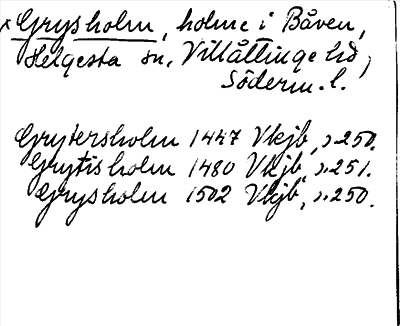 x Grysholm, holme i Båven,
Helgesta sn, Villåttinge hd,
Söderm. l.
Grytersholm 1447 Vkjb, s. 250.
Grytisholm 1480 Vkjb, s. 251.
Grysholm 1502 Vkjb, s. 250.